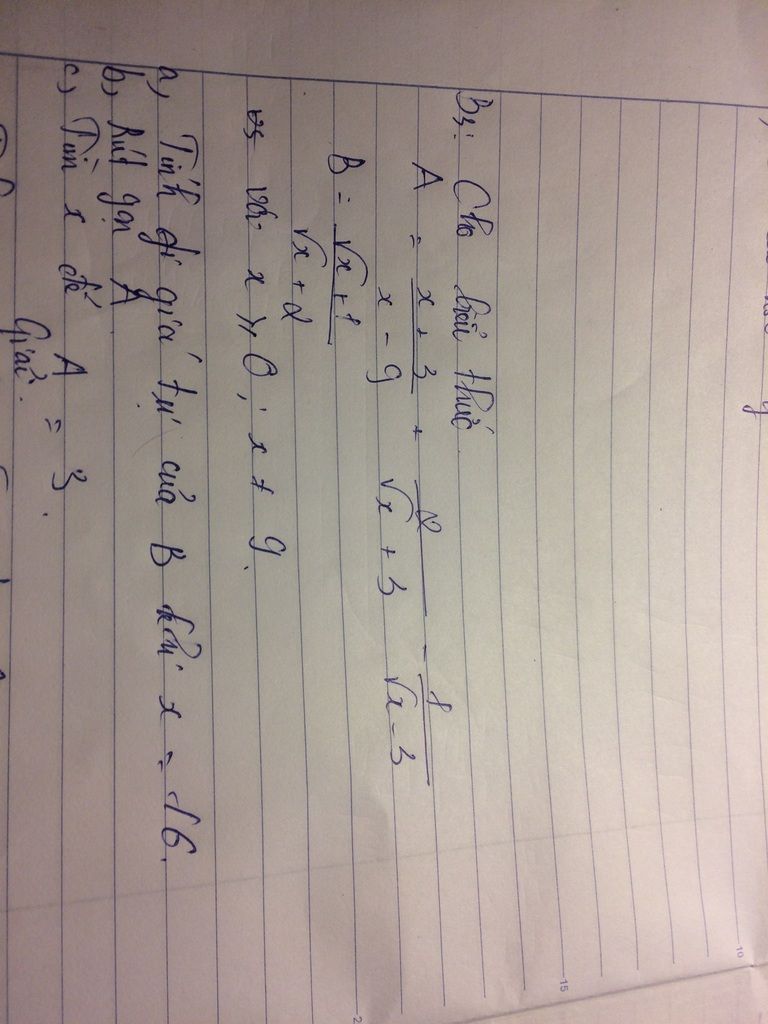 B3: Cho biểu thức
A = x + 3 / x - 9 + 2 / √x + 3 - 1 / √x - 3
B = √x + 1 / √x + 2
vs với x ≥ 0; x ≠ 9.
a, Tính gi giá trị của B khi x = 16.
b, Rút gọn A.
c, Tìm x để A = 3.
Giải.
10
15
2